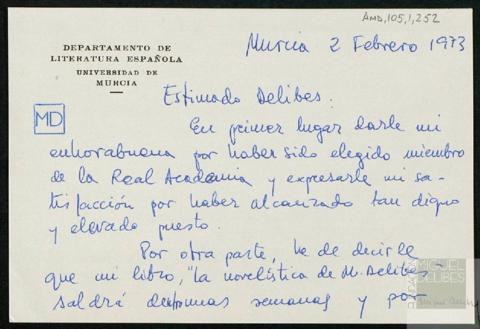 AMD,105,1,252
DEPARTAMENTO DE
LITERATURA ESPAÑOLA
UNIVERSIDAD DE
MURCIA
Murcia 2 Febrero 1973
MD
Estimado Delibes:
En primer lugar darle mi
enhorabuena por haber sido elegido miembro
de la Real Academia y expresarle mi sa-
tisfacción por haber alcanzado tan digno
y elevado puesto.
Por otra parte, he de decirle
que mi libro, "La novelística de M. Delibes"
saldrá dentro unas semanas y por
FUNDACIÓN
MIGUEL
DELIBES